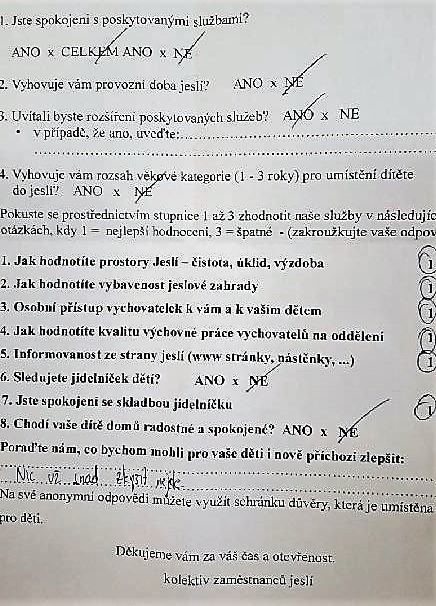 1. Jste spokojeni s poskytovanými službami?
ANO x CELKEM ANO x NE
2. Vyhovuje vám provozní doba jeslí? ANO x NE
3. Uvítali byste rozšíření poskytovaných služeb? ANO x NE
• v případě, že ano, uveďte:
4. Vyhovuje vám rozsah věkové kategorie (1 - 3 roky) pro umístění dítěte
do jeslí? ANO x NE
Pokuste se prostřednictvím stupnice 1 až 3 zhodnotit naše služby v následujíc
otázkách, kdy 1 = nejlepší hodnocení, 3 = špatné - (zakroužkujte vaše odpov
1. Jak hodnotíte prostory Jeslí – čistota, úklid, výzdoba 1
2. Jak hodnotíte vybavenost jeslové zahrady 1
3. Osobní přístup vychovatelek k vám a k vašim dětem 1
4. Jak hodnotíte kvalitu výchovné práce vychovatelů na oddělení 1
5. Informovanost ze strany jeslí (www stránky, nástěnky, ...) 1
6. Sledujete jídelníček dětí? ANO x NE
7. Jste spokojeni se skladbou jídelníčku 1
8. Chodí vaše dítě domů radostné a spokojené? ANO x NE
Poraďte nám, co bychom mohli pro vaše děti i nově příchozí zlepšit:
Nic už snad zlepšit nejde
Na své anonymní odpovědi můžete využít schránku důvěry, která je umístěna
pro děti.
Děkujeme vám za váš čas a otevřenost.
kolektiv zaměstnanců jeslí